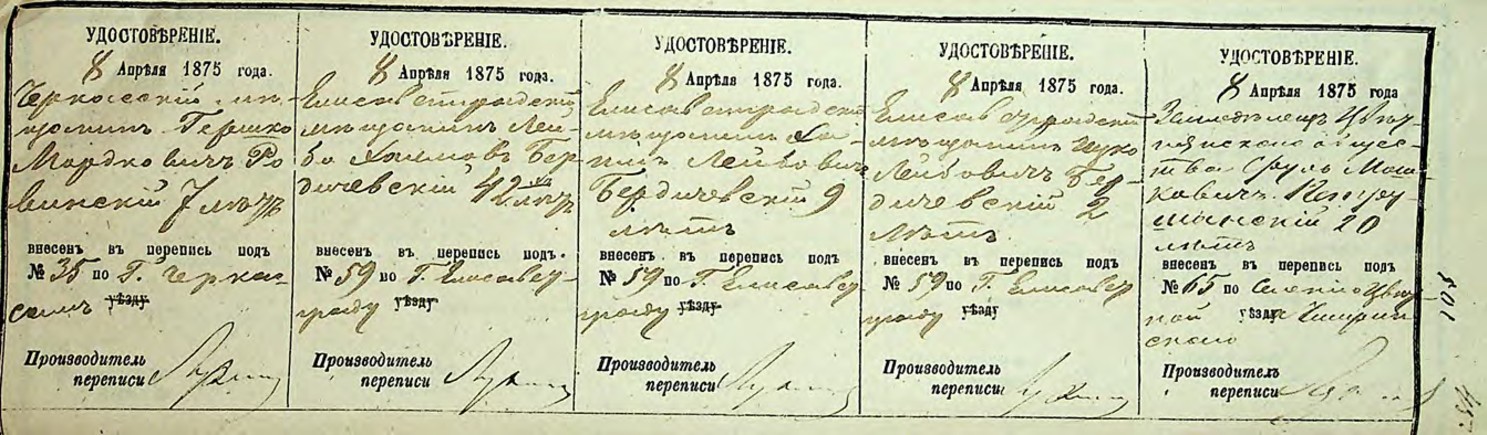 УДОСТОВѢРЕНІЕ.
8 Апрѣля 1875 года.
Черкасскій мѣ-
щанинъ Гершко
Мордковичъ Ро
винскій 7 лѣтъ
внесенъ въ перепись подъ
№ 35 по Г. Черкас-
самъ уѣзду
Производитель
переписи
УДОСТОВѢРЕНІЕ.
8 Апрѣля 1875 года.
Елисаветградскій
мѣщанинъ Лей-
ба Хаимовъ Бер
дичевскій 42 лѣтъ
внесенъ въ перепись подъ.
№ 59 по Г. Елисавет-
граду уѣзду
Производитель
переписи
УДОСТОВѢРЕНІЕ.
8 Апрѣля 1875 года.
Елисаветградскій
мѣщанинъ Ха-
имъ Лейбовичъ
Бердичевскій 9
лѣтъ
внесенъ въ перепись подъ
№ 59 по Г. Елисавет
граду уѣзду
Производитель
переписи
УДОСТОВѢРЕНІЕ.
8 Апрѣля 1875 года.
Елисаветградскій
мѣщанинъ Ицко
Лейбовичъ Бер-
дичевскій 2
лѣтъ.
внесенъ въ перепись подъ
№ 59 по Г. Елисавет
граду уѣзду
Производитель
переписи
УДОСТОВѢРЕНІЕ.
8 Апрѣля 1875 года
Землевладѣлецъ
общес-
тва Сруль Мош-
ковичъ
20
лѣтъ
внесенъ въ перепись подъ
№ 65 по
уѣзду
Производитель
переписи